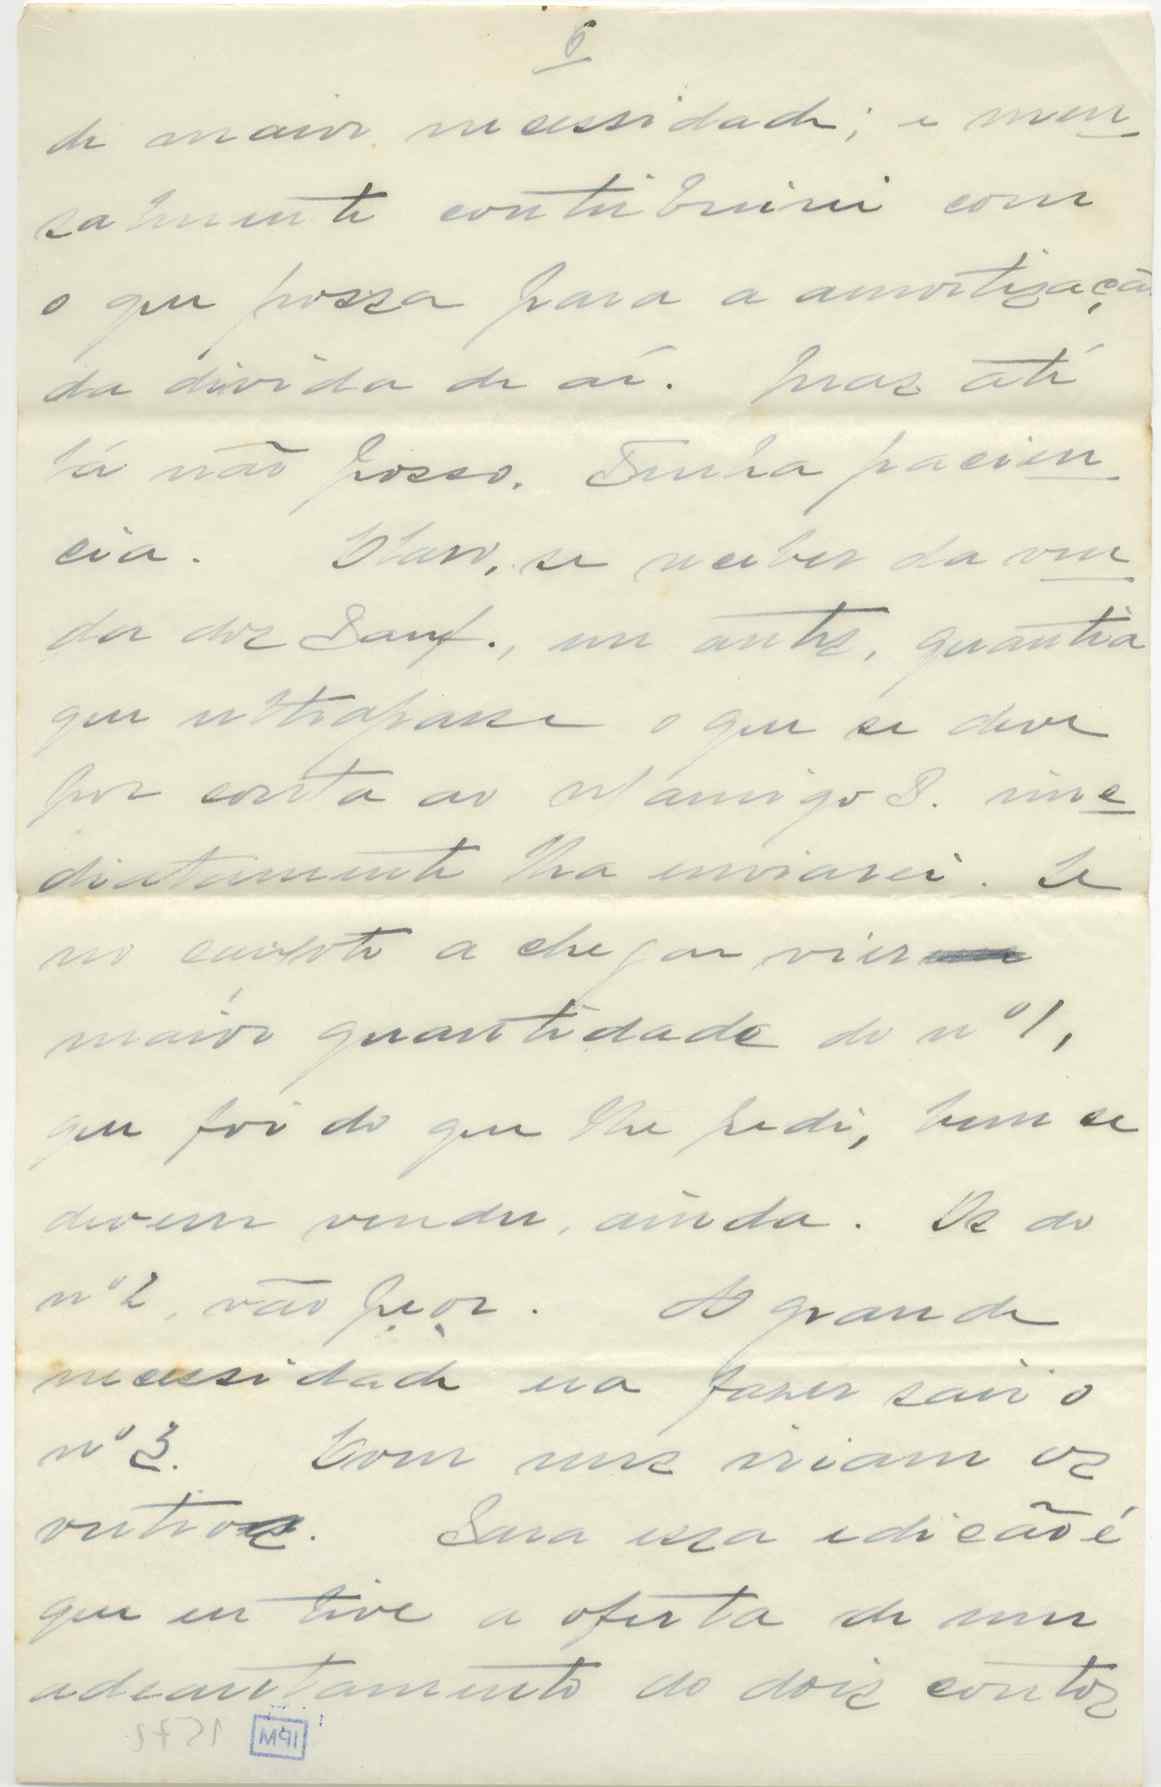 6
de maior necessidade; e men
salmente contribuirei com
o que possa para a amortização
da divida de aí. Mas até
lá não posso. Tenha pacien
cia. Claro, se receber da ven
da dos Panf., ou antes, quantia
que ultrapasse o que se deve
por conta ao amigo P. ime
diatamente lha enviarei. Se
no caixote a chegar vier
maiór quantidade do nº 1,
que foi do que lhe pedi, bem se
devem vender, ainda. Os do
nº 2, vão peor. A grande
necessidade era fazer sair o
nº 3. Com uns iriam os
outros. Para essa edicão é
que eu tive a oferta de um
adeantamento de dois contos